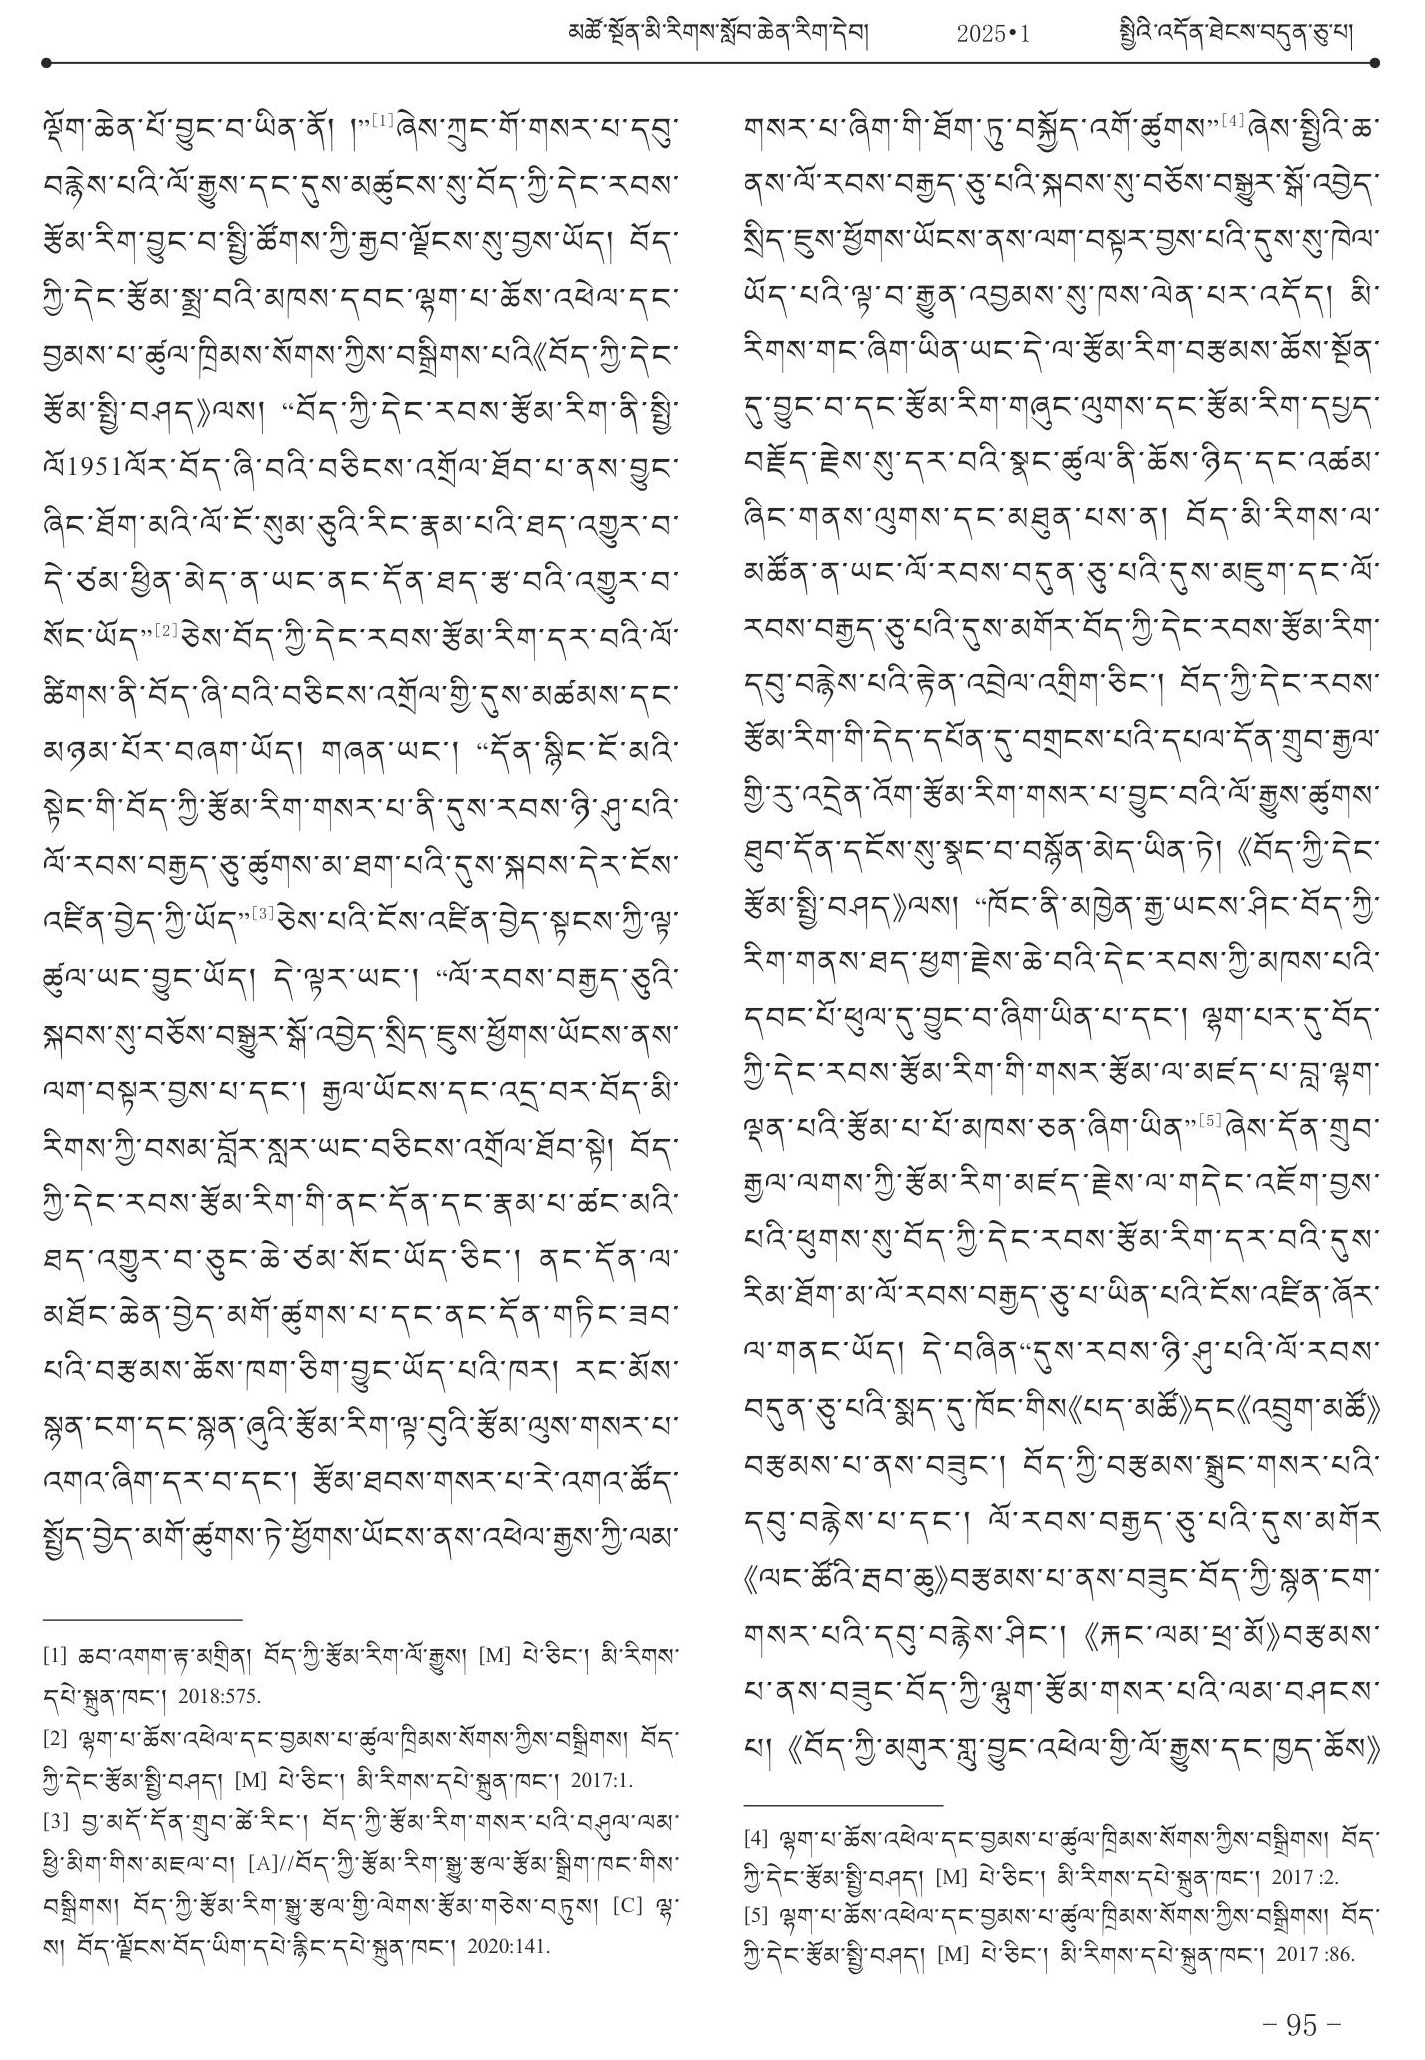 མཚོ་སྔོན་མི་རིགས་སློབ་ཆེན་རིག་དེབ། 2025•1 སྤྱིའི་འདོན་ཐེངས་བདུན་ཅུ་པ།
ལྡོག་ཆེན་པོ་བྱུང་བ་ཡིན་ནོ། །”[1]ཞེས་ཀྲུང་གོ་གསར་པ་དབུ་
བརྙེས་པའི་ལོ་རྒྱུས་དང་དུས་མཚུངས་སུ་བོད་ཀྱི་དེང་རབས་
རྩོམ་རིག་བྱུང་བ་སྤྱི་ཚོགས་ཀྱི་རྒྱབ་ལྗོངས་སུ་བྱས་ཡོད། བོད་
ཀྱི་དེང་རྩོམ་སྨྲ་བའི་མཁས་དབང་ལྷག་པ་ཆོས་འཕེལ་དང་
བྱམས་པ་ཚུལ་ཁྲིམས་སོགས་ཀྱིས་བསྒྲིགས་པའི《བོད་ཀྱི་དེང་
རྩོམ་སྤྱི་བཤད》ལས། “བོད་ཀྱི་དེང་རབས་རྩོམ་རིག་ནི་སྤྱི་
ལོ1951ལོར་བོད་ཞི་བའི་བཅིངས་འགྲོལ་ཐོབ་པ་ནས་བྱུང་
ཞིང་ཐོག་མའི་ལོ་ངོ་སུམ་ཅུའི་རིང་རྣམ་པའི་ཐད་འགྱུར་བ་
དེ་ཙམ་ཕྱིན་མེད་ན་ཡང་ནང་དོན་ཐད་རྩ་བའི་འགྱུར་བ་
སོང་ཡོད”[2]ཅེས་བོད་ཀྱི་དེང་རབས་རྩོམ་རིག་དར་བའི་ལོ་
ཚིགས་ནི་བོད་ཞི་བའི་བཅིངས་འགྲོལ་གྱི་དུས་མཚམས་དང་
མཉམ་པོར་བཞག་ཡོད། གཞན་ཡང་། “དོན་སྙིང་ངོ་མའི་
སྟེང་གི་བོད་ཀྱི་རྩོམ་རིག་གསར་པ་ནི་དུས་རབས་ཉི་ཤུ་པའི་
ལོ་རབས་བརྒྱད་ཅུ་ཚུགས་མ་ཐག་པའི་དུས་སྐབས་དེར་ངོས་
འཛིན་བྱེད་ཀྱི་ཡོད”[3]ཅེས་པའི་ངོས་འཛིན་བྱེད་སྟངས་ཀྱི་ལྟ་
ཚུལ་ཡང་བྱུང་ཡོད། དེ་ལྟར་ཡང་། “ལོ་རབས་བརྒྱད་ཅུའི་
སྐབས་སུ་བཅོས་བསྒྱུར་སྒོ་འབྱེད་སྲིད་ཇུས་ཕྱོགས་ཡོངས་ནས་
ལག་བསྟར་བྱས་པ་དང་། རྒྱལ་ཡོངས་དང་འདྲ་བར་བོད་མི་
རིགས་ཀྱི་བསམ་བློར་སླར་ཡང་བཅིངས་འགྲོལ་ཐོབ་སྟེ། བོད་
ཀྱི་དེང་རབས་རྩོམ་རིག་གི་ནང་དོན་དང་རྣམ་པ་ཚང་མའི་
ཐད་འགྱུར་བ་ཅུང་ཆེ་ཙམ་སོང་ཡོད་ཅིང་། ནང་དོན་ལ་
མཐོང་ཆེན་བྱེད་མགོ་ཚུགས་པ་དང་ནང་དོན་གཏིང་ཟབ་
པའི་བརྩམས་ཆོས་ཁག་ཅིག་བྱུང་ཡོད་པའི་ཁར། རང་མོས་
སྙན་ངག་དང་སྙན་ཞུའི་རྩོམ་རིག་ལྟ་བུའི་རྩོམ་ལུས་གསར་པ་
འགའ་ཞིག་དར་བ་དང་། རྩོམ་ཐབས་གསར་པ་རེ་འགའ་ཚོད་
སྤྱོད་བྱེད་མགོ་ཚུགས་ཏེ་ཕྱོགས་ཡོངས་ནས་འཕེལ་རྒྱས་ཀྱི་ལམ་
[1] ཆབ་འགག་རྟ་མགྲིན། བོད་ཀྱི་རྩོམ་རིག་ལོ་རྒྱུས། [M] པེ་ཅིང་། མི་རིགས་
དཔེ་སྐྲུན་ཁང་། 2018:575.
[2] ལྷག་པ་ཆོས་འཕེལ་དང་བྱམས་པ་ཚུལ་ཁྲིམས་སོགས་ཀྱིས་བསྒྲིགས། བོད་
ཀྱི་དེང་རྩོམ་སྤྱི་བཤད། [M] པེ་ཅིང་། མི་རིགས་དཔེ་སྐྲུན་ཁང་། 2017:1.
[3] བྱ་མདོ་དོན་གྲུབ་ཚེ་རིང་། བོད་ཀྱི་རྩོམ་རིག་གསར་པའི་བཤུལ་ལམ་
ཕྱི་མིག་གིས་མཇལ་བ། [A]//བོད་ཀྱི་རྩོམ་རིག་སྒྱུ་རྩལ་རྩོམ་སྒྲིག་ཁང་གིས་
བསྒྲིགས། བོད་ཀྱི་རྩོམ་རིག་སྒྱུ་རྩལ་གྱི་ལེགས་རྩོམ་གཅེས་བཏུས། [C] ལྷ་
ས། བོད་ལྗོངས་བོད་ཡིག་དཔེ་རྙིང་དཔེ་སྐྲུན་ཁང་། 2020:141.
གསར་པ་ཞིག་གི་ཐོག་ཏུ་བསྐྱོད་འགོ་ཚུགས”[4]ཞེས་སྤྱིའི་ཆ་
ནས་ལོ་རབས་བརྒྱད་ཅུ་པའི་སྐབས་སུ་བཅོས་བསྒྱུར་སྒོ་འབྱེད་
སྲིད་ཇུས་ཕྱོགས་ཡོངས་ནས་ལག་བསྟར་བྱས་པའི་དུས་སུ་ཁེལ་
ཡོད་པའི་ལྟ་བ་རྒྱུན་འབྱམས་སུ་ཁས་ལེན་པར་འདོད། མི་
རིགས་གང་ཞིག་ཡིན་ཡང་དེ་ལ་རྩོམ་རིག་བརྩམས་ཆོས་སྔོན་
དུ་བྱུང་བ་དང་རྩོམ་རིག་གཞུང་ལུགས་དང་རྩོམ་རིག་དཔྱད་
བརྗོད་རྗེས་སུ་དར་བའི་སྣང་ཚུལ་ནི་ཆོས་ཉིད་དང་འཚམ་
ཞིང་གནས་ལུགས་དང་མཐུན་པས་ན། བོད་མི་རིགས་ལ་
མཚོན་ན་ཡང་ལོ་རབས་བདུན་ཅུ་པའི་དུས་མཇུག་དང་ལོ་
རབས་བརྒྱད་ཅུ་པའི་དུས་མགོར་བོད་ཀྱི་དེང་རབས་རྩོམ་རིག་
དབུ་བརྙེས་པའི་རྟེན་འབྲེལ་འགྲིག་ཅིང་། བོད་ཀྱི་དེང་རབས་
རྩོམ་རིག་གི་དེད་དཔོན་དུ་བགྲངས་པའི་དཔལ་དོན་གྲུབ་རྒྱལ་
གྱི་རུ་འདྲེན་འོག་རྩོམ་རིག་གསར་པ་བྱུང་བའི་ལོ་རྒྱུས་ཚུགས་
ཐུབ་དོན་དངོས་སུ་སྣང་བ་བསྙོན་མེད་ཡིན་ཏེ། 《བོད་ཀྱི་དེང་
རྩོམ་སྤྱི་བཤད》ལས། “ཁོང་ནི་མཁྱེན་རྒྱ་ཡངས་ཤིང་བོད་ཀྱི་
རིག་གནས་ཐད་ཕྱག་རྗེས་ཆེ་བའི་དེང་རབས་ཀྱི་མཁས་པའི་
དབང་པོ་ཕུལ་དུ་བྱུང་བ་ཞིག་ཡིན་པ་དང་། ལྷག་པར་དུ་བོད་
ཀྱི་དེང་རབས་རྩོམ་རིག་གི་གསར་རྩོམ་ལ་མཛད་པ་བླ་ལྷག་
ལྡན་པའི་རྩོམ་པ་པོ་མཁས་ཅན་ཞིག་ཡིན”[5]ཞེས་དོན་གྲུབ་
རྒྱལ་ལགས་ཀྱི་རྩོམ་རིག་མཛད་རྗེས་ལ་གདེང་འཇོག་བྱས་
པའི་ཕུགས་སུ་བོད་ཀྱི་དེང་རབས་རྩོམ་རིག་དར་བའི་དུས་
རིམ་ཐོག་མ་ལོ་རབས་བརྒྱད་ཅུ་པ་ཡིན་པའི་ངོས་འཛིན་ཞོར་
ལ་གནང་ཡོད། དེ་བཞིན“དུས་རབས་ཉི་ཤུ་པའི་ལོ་རབས་
བདུན་ཅུ་པའི་སྨད་དུ་ཁོང་གིས《པད་མཚོ》དང《འབྲུག་མཚོ》
བརྩམས་པ་ནས་བཟུང་། བོད་ཀྱི་བརྩམས་སྒྲུང་གསར་པའི་
དབུ་བརྙེས་པ་དང་། ལོ་རབས་བརྒྱད་ཅུ་པའི་དུས་མགོར
《ལང་ཚོའི་རྦབ་ཆུ》བརྩམས་པ་ནས་བཟུང་བོད་ཀྱི་སྙན་ངག་
གསར་པའི་དབུ་བརྙེས་ཤིང་། 《རྐང་ལམ་ཕྲ་མོ》བརྩམས་
པ་ནས་བཟུང་བོད་ཀྱི་ལྷུག་རྩོམ་གསར་པའི་ལམ་བཤངས་
པ། 《བོད་ཀྱི་མགུར་གླུ་བྱུང་འཕེལ་གྱི་ལོ་རྒྱུས་དང་ཁྱད་ཆོས》
[4] ལྷག་པ་ཆོས་འཕེལ་དང་བྱམས་པ་ཚུལ་ཁྲིམས་སོགས་ཀྱིས་བསྒྲིགས། བོད་
ཀྱི་དེང་རྩོམ་སྤྱི་བཤད། [M] པེ་ཅིང་། མི་རིགས་དཔེ་སྐྲུན་ཁང་། 2017 :2.
[5] ལྷག་པ་ཆོས་འཕེལ་དང་བྱམས་པ་ཚུལ་ཁྲིམས་སོགས་ཀྱིས་བསྒྲིགས། བོད་
ཀྱི་དེང་རྩོམ་སྤྱི་བཤད། [M] པེ་ཅིང་། མི་རིགས་དཔེ་སྐྲུན་ཁང་། 2017 :86.
– 95 –